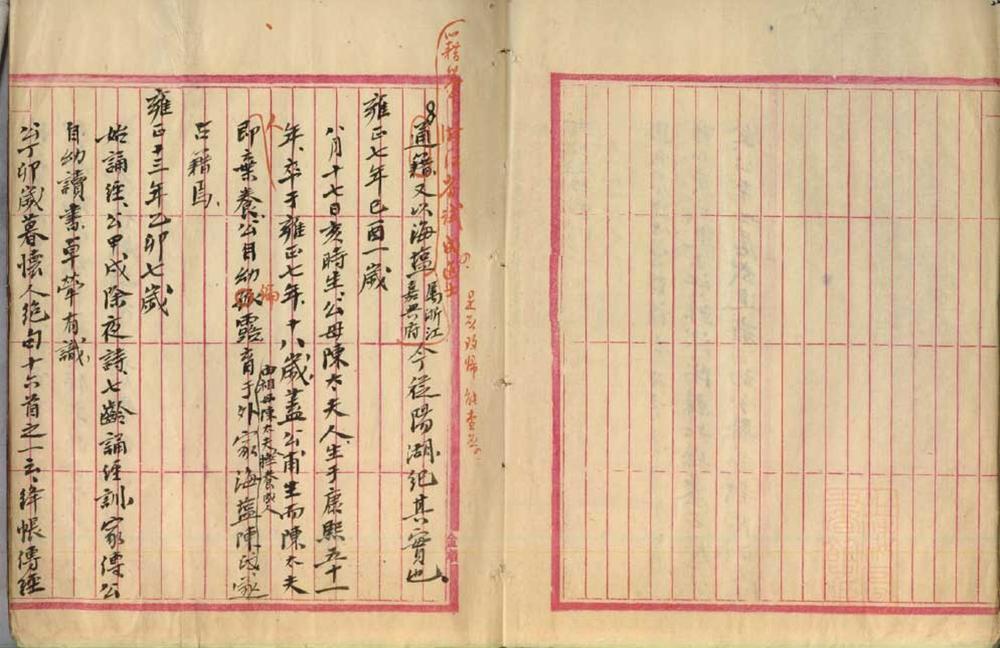 通籍又以海盐属浙江嘉兴府今从阳湖纪其實也
雍正七年己酉一歲
八月十七日亥時生公母陳太夫人生于康熙五十一
年卒于雍正七年十八歲蓋公甫生而陳太夫人
即棄養公自幼孤露育于外家海盐陳氏遂
由祖母陳太夫撫養成人
占籍焉
雍正十三年乙卯七歲
始誦經公甲戌除夜詩七齡誦經訓家傳公
自幼讀書卓犖有識
公丁卯歲暮懷人绝句十六首之一云絳帳傳經